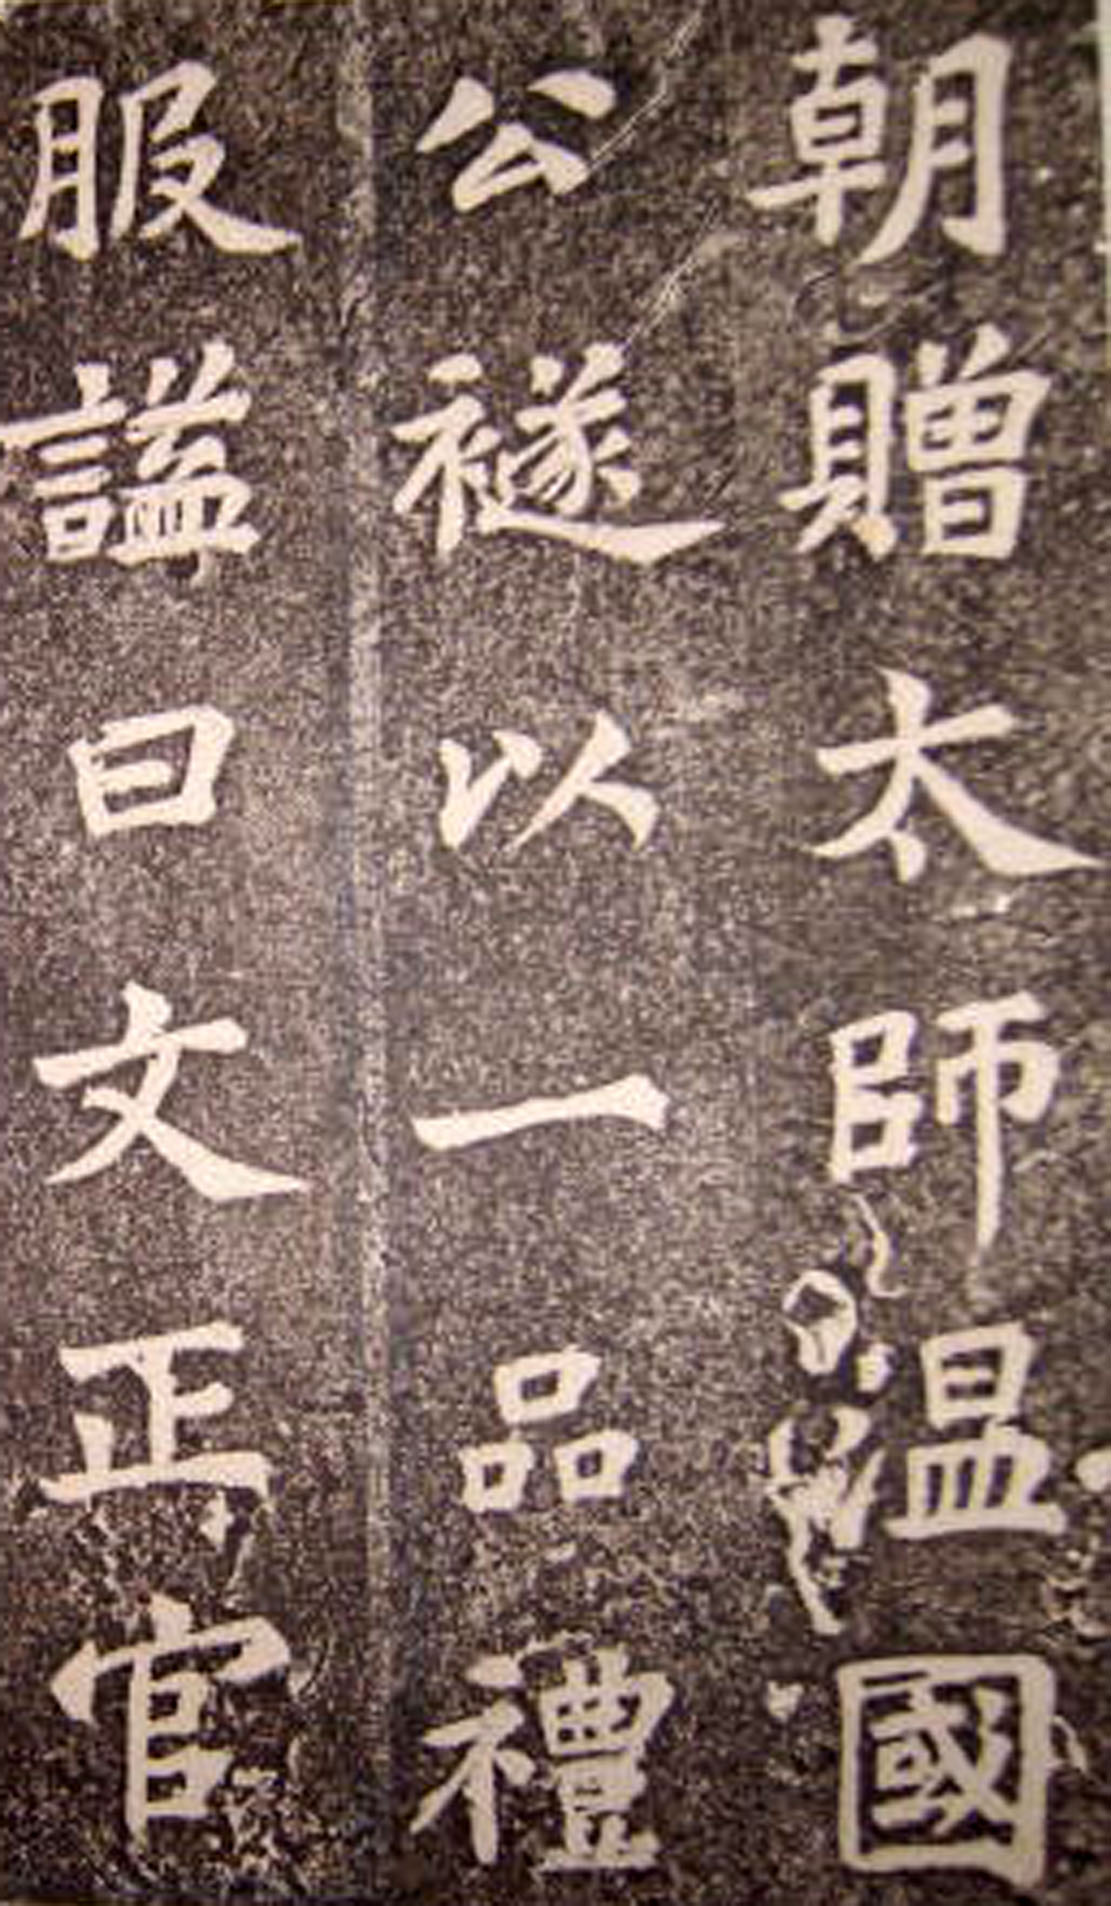 朝贈太師温國
公襚以一品禮
服謚曰文正官